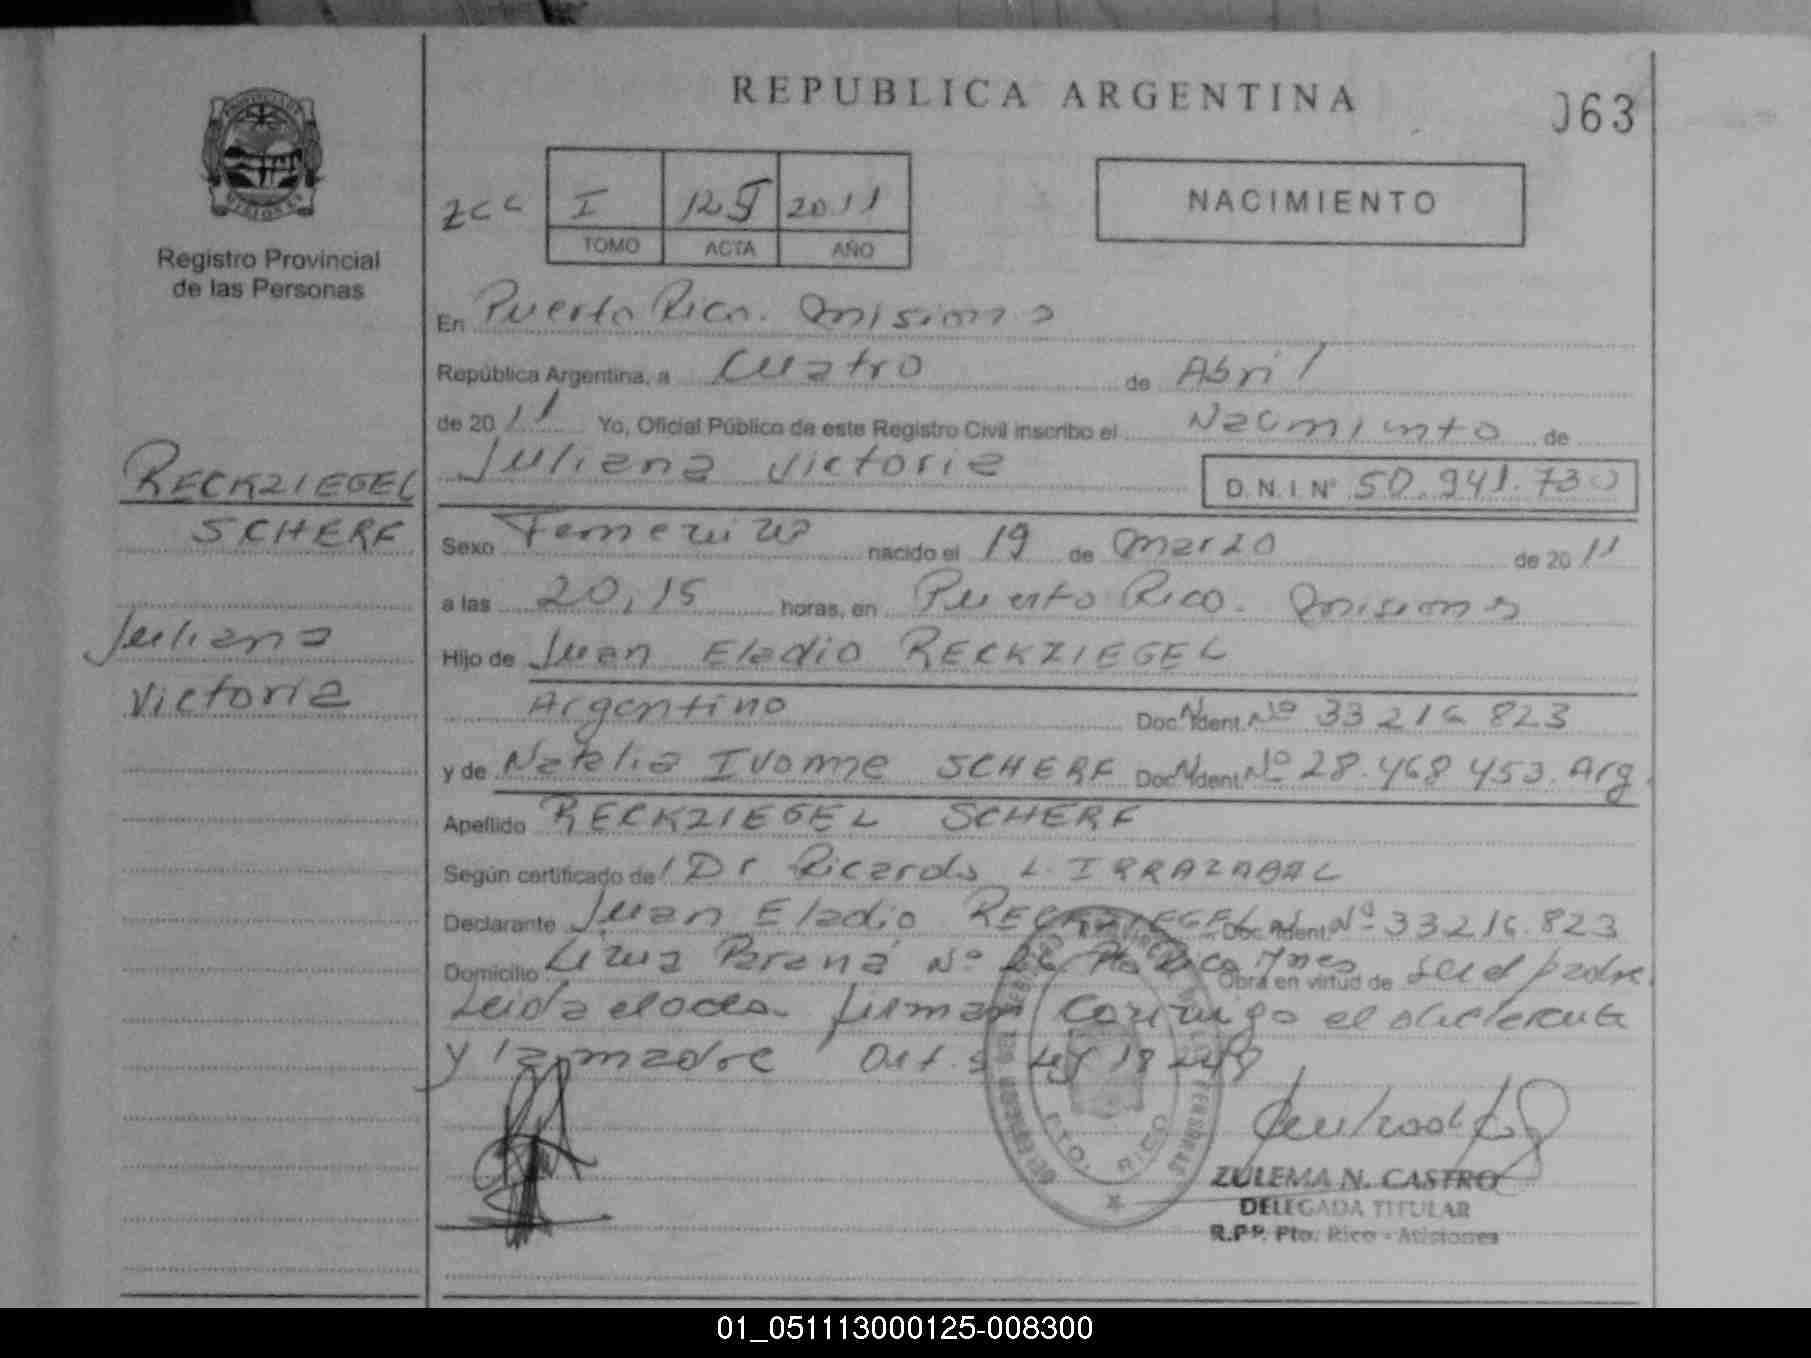 REPUBLICA ARGENTINA
063
PROVINCIA DE
MISIONES
Registro Provincial
de las Personas
zcc I 125 2011
TOMO ACTA AÑO
NACIMIENTO
En Puerto Rico. Misiones
República Argentina, a Cuatro de Abril
de 2011 Yo, Oficial Público de este Registro Civil inscribo el Nacimiento de
Juliana Victoria D.N.I. Nº 50.941.730
RECKZIEGEL
SCHERF
Juliana
Victoria
Sexo Femenino nacido el 19 de Marzo de 2011
a las 20,15 horas, en Puerto Rico. Misiones
Hijo de Juan Eladio RECKZIEGEL
Argentino Doc. N. Ident. Nº 33 216 823
y de Natalia Ivonne SCHERF Doc. N. Ident. Nº 28.468 453. Arg.
Apellido RECKZIEGEL SCHERF
Según certificado de l Dr Ricardo L. IRRAZABAL
Declarante Juan Eladio RECKZIEGEL Doc. N. Ident. Nº 33 216.823
Domicilio Linea Paraná Nº Pto Rico Mnes Obra en virtud de ser el padre.
Leida el acta firman conmigo el declarante
y la madre Art. 5 Ley 18 248
PTO. RICO
ZULEMA N. CASTRO
DELEGADA TITULAR
R.P.P. Pto. Rico - Misiones
01_051113000125-008300